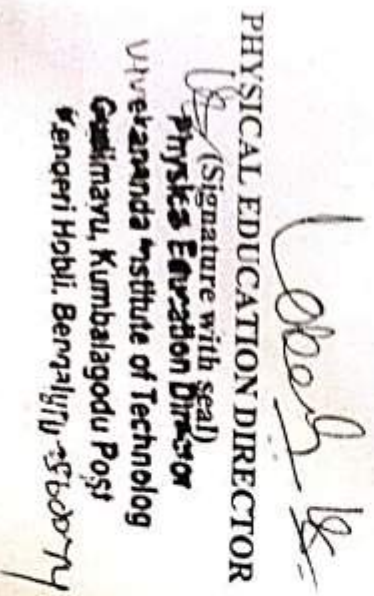 PHYSICAL EDUCATION DIRECTOR
(Signature with seal)
Physical Education Director
Vivekananda Institute of Technolog
Gudimavu, Kumbalagodu Post
Kengeri Hobli, Bengaluru